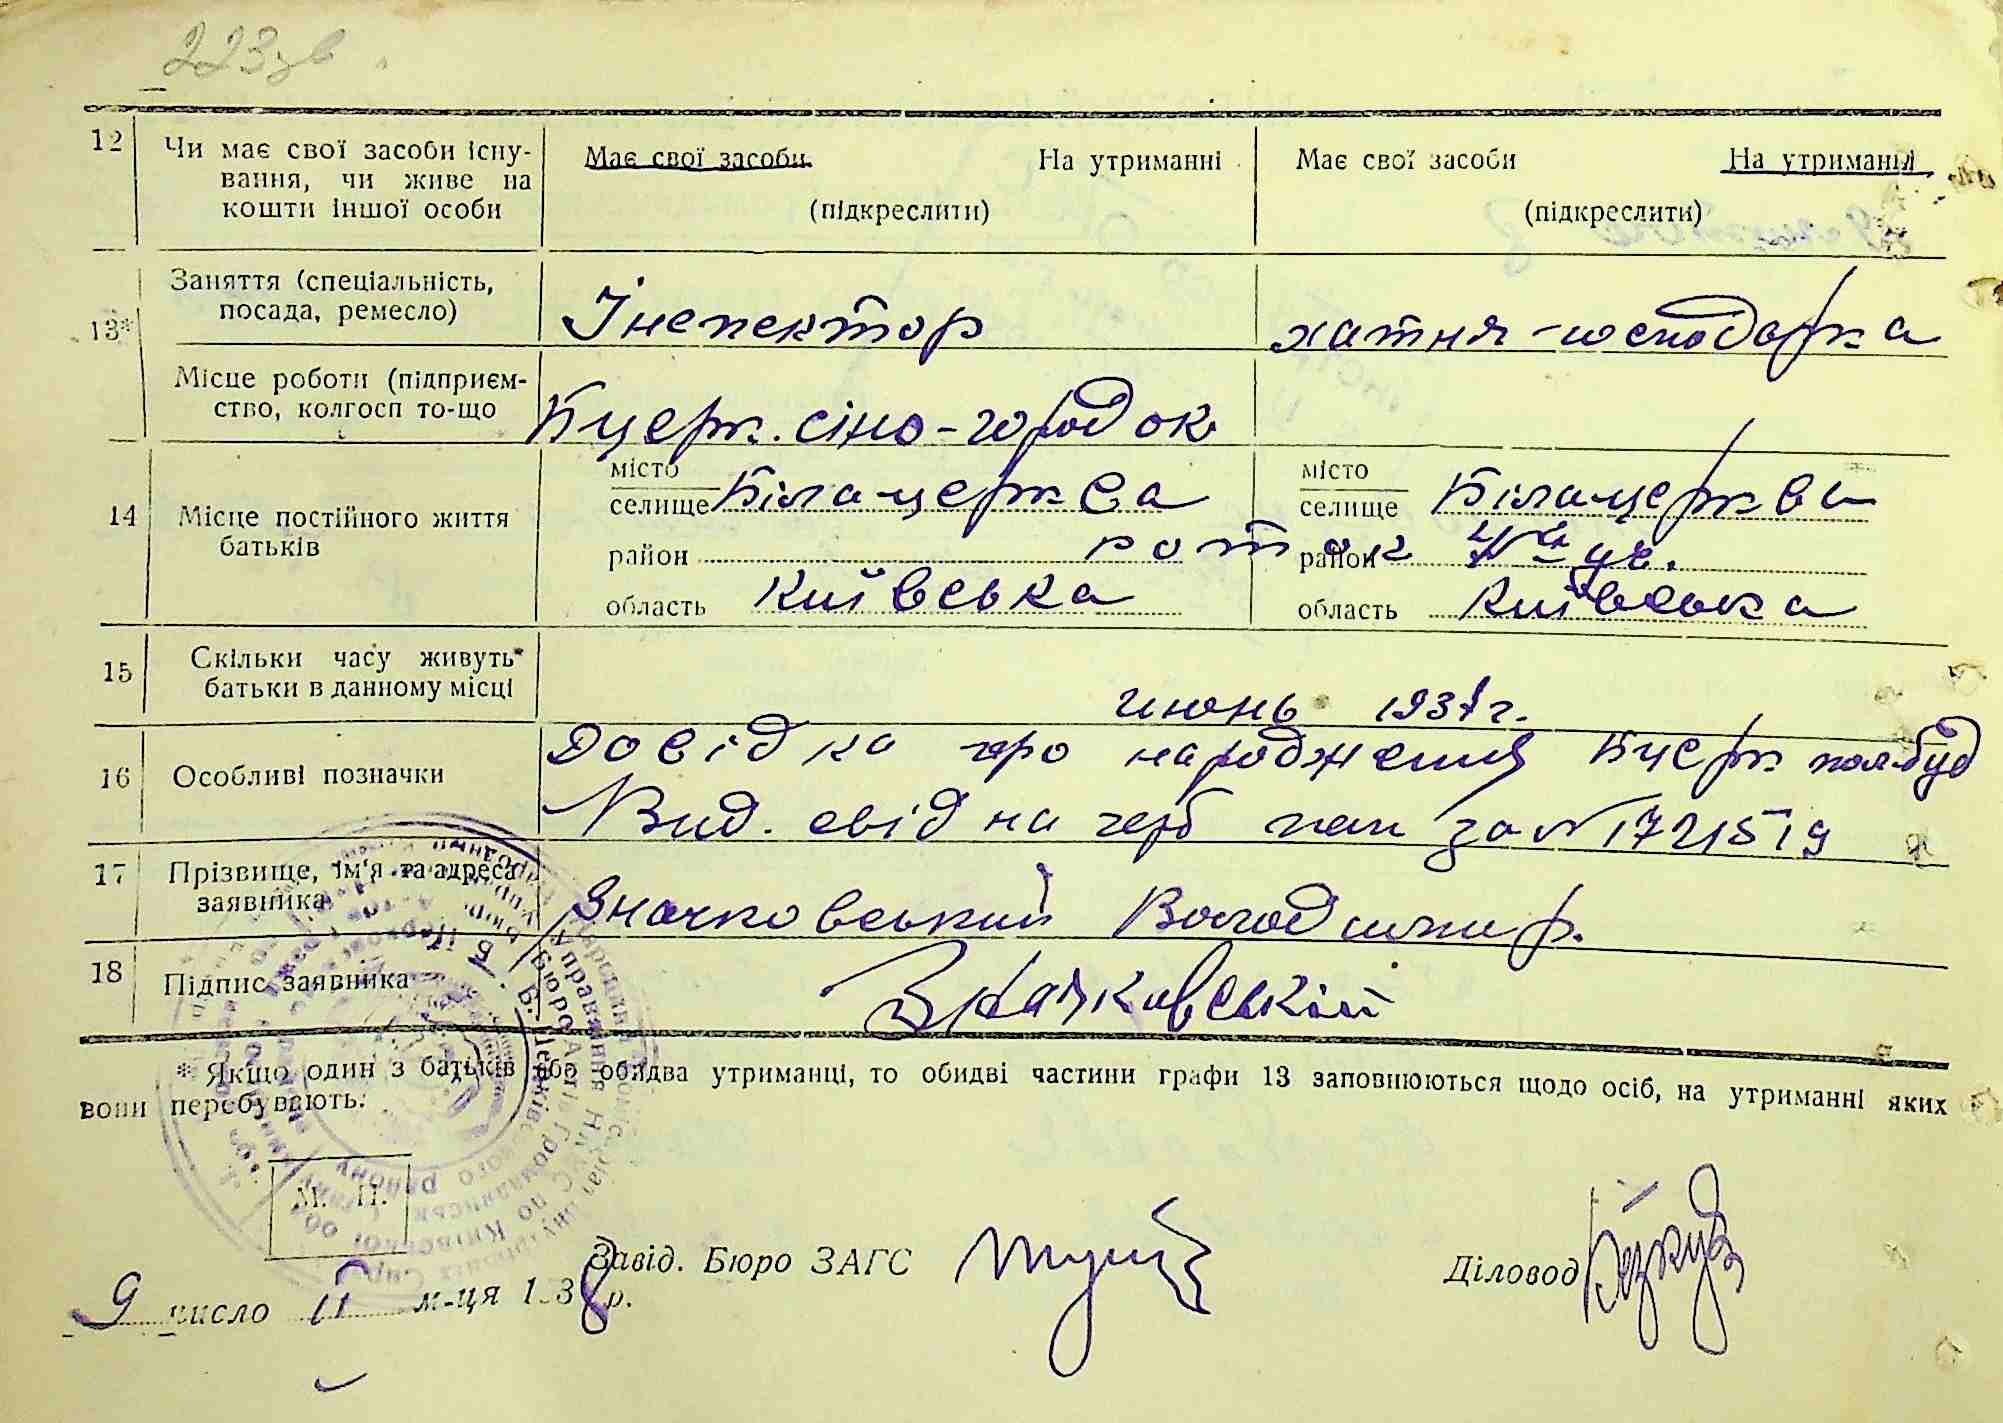 223зв
12 Чи має свої засоби існу-
вання, чи живе на
кошти іншої особи
Має свої засоби. На утриманні
(підкреслити)
Має свої засоби На утриманні
(підкреслити)
13* Заняття (спеціальність,
посада, ремесло)
Інспектор
хатня-господарка
Місце роботи (підприєм-
ство, колгосп то-що
Бцерк. сіно-городок
14 Місце постійного життя
батьків
місто
селище Білацерква
район роток
область Київська
місто
селище Білацерква
район
область Київська
15 Скільки часу живуть
батьки в данному місці
июнь 1937 г.
16 Особливі позначки
Довідка про народження Бцерк пол-буд
Вид. свід на герб пап за № 1721519
17 Прізвище, ім'я та адреса
заявника
Значковський Володимир.
18 Підпис заявника
Значковський
* Якщо один з батьків або обидва утриманці, то обидві частини графи 13 заповнюються щодо осіб, на утриманні яких
вони перебувають.
М. П.
9 число II м-ця 1938 р.
Завід. Бюро ЗАГС
Діловод